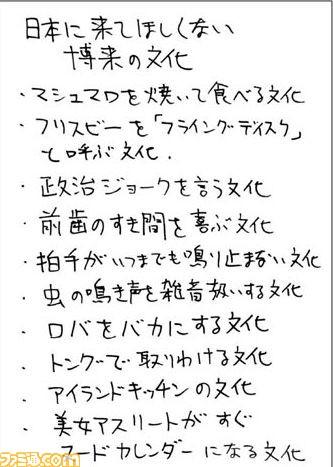 日本に来てほしくない
舶来の文化
・マシュマロを焼いて食べる文化
・フリスビーを「フライングディスク」
と呼ぶ文化.
・政治ジョークを言う文化
・前歯のすき間を喜ぶ文化
・拍手がいつまでも鳴り止まない文化
・虫の鳴き声を雑音扱いする文化
・ロバをバカにする文化
・トングで取りわける文化
・アイランドキッチンの文化
・美女アスリートがすぐ
ヌードカレンダーになる文化
ファミ通.com